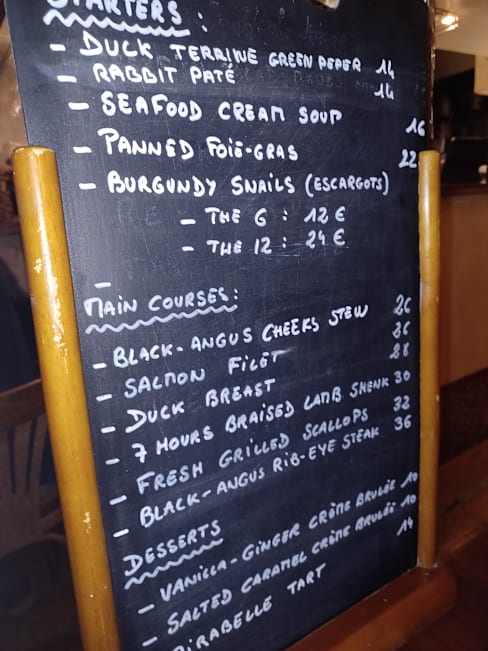 STARTERS :
- DUCK TERRINE GREEN PEPER 14
- RABBIT PATÉ 14
- SEAFOOD CREAM SOUP 16
- PANNED FOIE-GRAS 22
- BURGUNDY SNAILS (ESCARGOTS)
- THE 6 : 12 €
- THE 12 : 24 €
-
MAIN COURSES :
- BLACK-ANGUS CHEEKS STEW 26
- SALMON FILET 26
- DUCK BREAST 28
- 7 HOURS BRAISED LAMB SHENK 30
- FRESH GRILLED SCALLOPS 32
- BLACK-ANGUS RIB-EYE STEAK 36
DESSERTS
- VANILLA-GINGER CRÈME BRULÉE 10
- SALTED CARAMEL CRÈME BRULÉE 10
- MIRABELLE TART 14